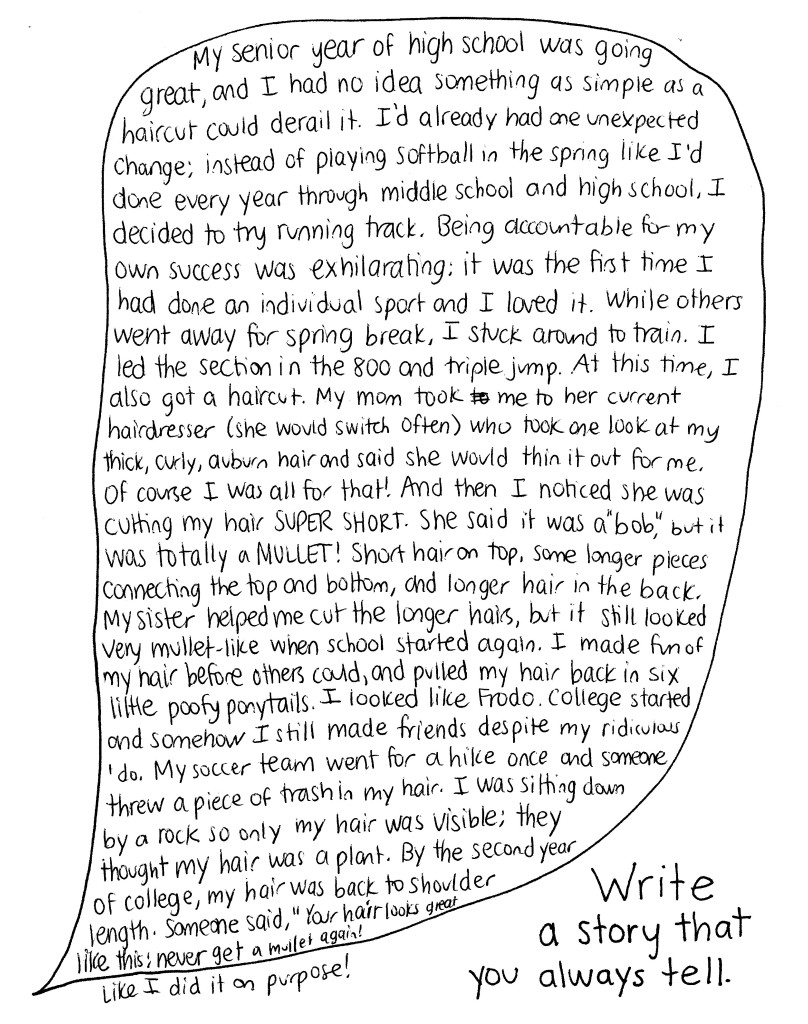 My senior year of high school was going
great, and I had no idea something as simple as a
haircut could derail it. I'd already had one unexpected
change; instead of playing softball in the spring like I'd
done every year through middle school and high school, I
decided to try running track. Being accountable for my
own success was exhilarating; it was the first time I
had done an individual sport and I loved it. While others
went away for spring break, I stuck around to train. I
led the section in the 800 and triple jump. At this time, I
also got a haircut. My mom took me to her current
hairdresser (she would switch often) who took one look at my
thick, curly, auburn hair and said she would thin it out for me.
Of course I was all for that! And then I noticed she was
cutting my hair SUPER SHORT. She said it was a "bob," but it
was totally a MULLET! Short hair on top, some longer pieces
connecting the top and bottom, and longer hair in the back.
My sister helped me cut the longer hairs, but it still looked
very mullet-like when school started again. I made fun of
my hair before others could, and pulled my hair back in six
little poofy ponytails. I looked like Frodo. College started
and somehow I still made friends despite my ridiculous
'do. My soccer team went for a hike once and someone
threw a piece of trash in my hair. I was sitting down
by a rock so only my hair was visible; they
thought my hair was a plant. By the second year
of college, my hair was back to shoulder
length. Someone said, "Your hair looks great
like this; never get a mullet again!
Like I did it on purpose!
Write
a story that
you always tell.